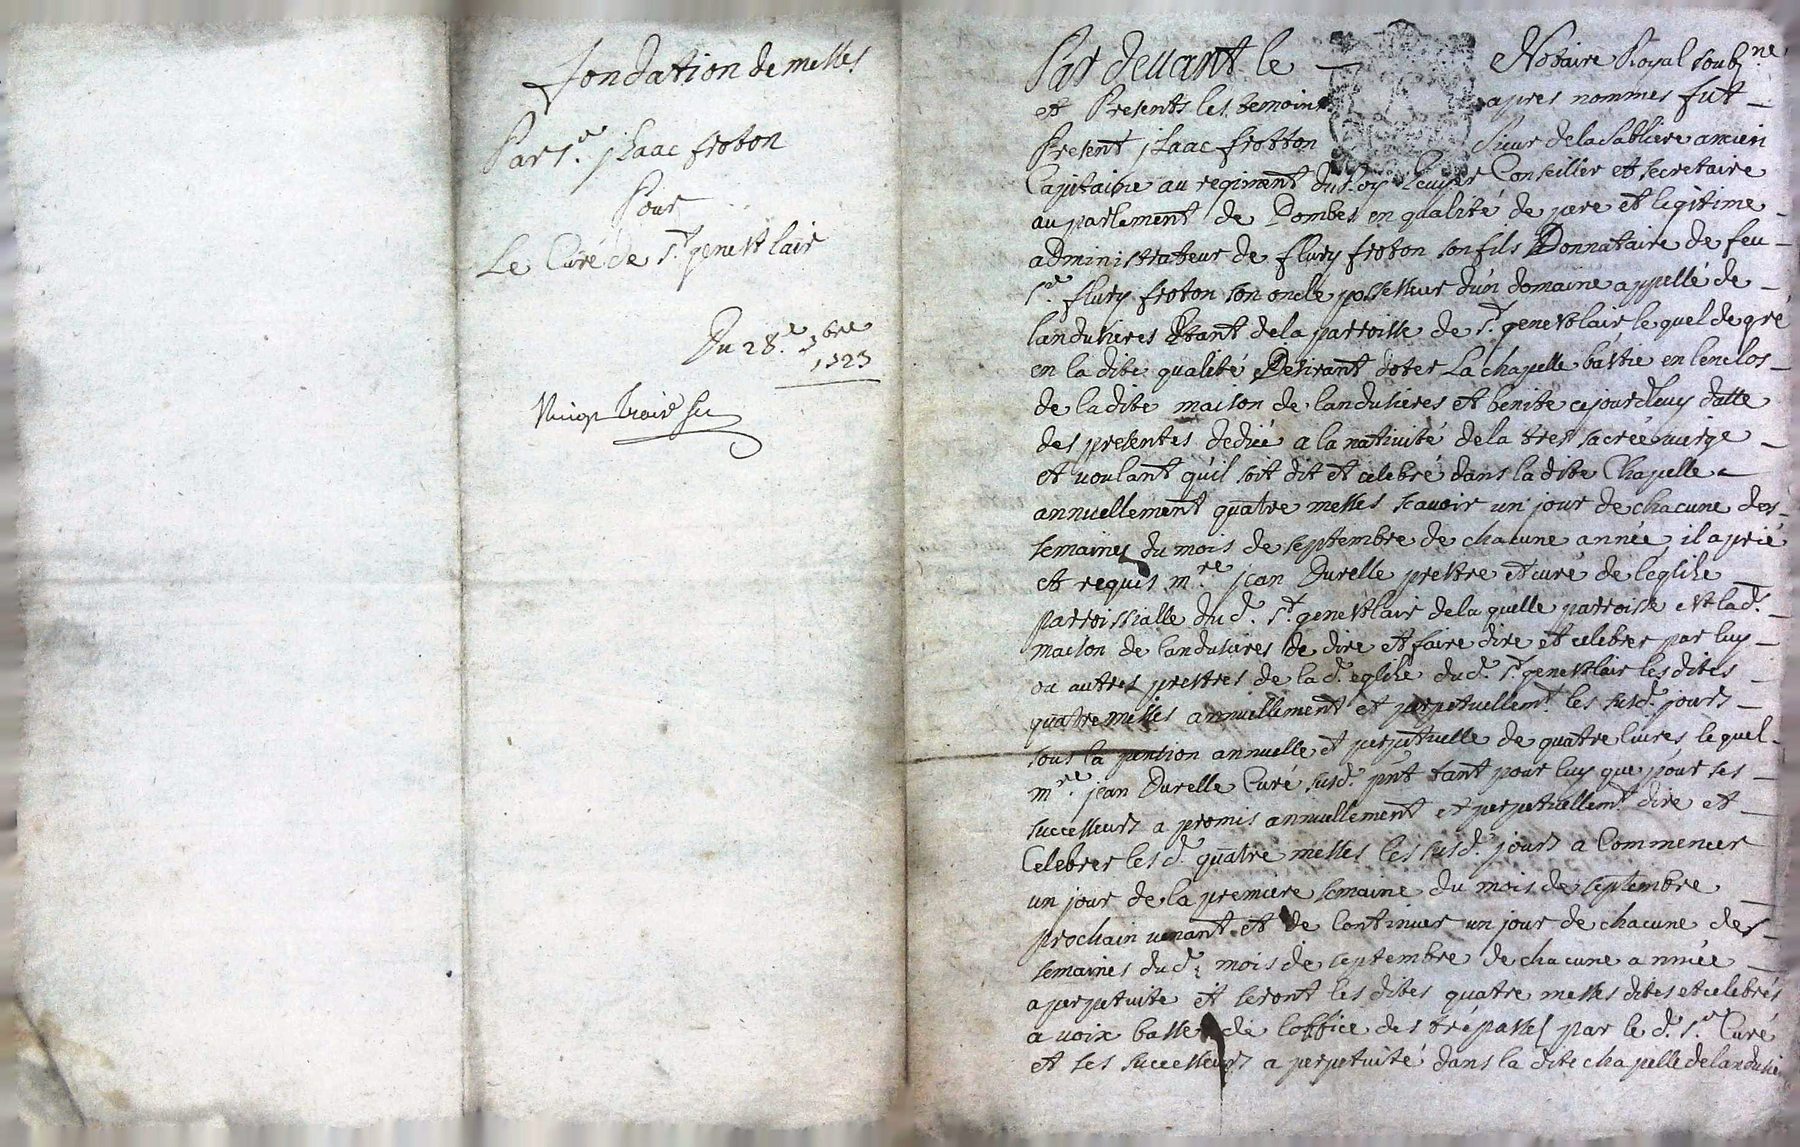 fondation de messes
Par sr. jsaac froton
Pour
Le Curé de st. genest lair
Du 28.e 9bre
1723
Par deuant le Notaire Royal soubs.ne
et Presents les temoins apres nommes fut
Present jsaac frotton sieur de la Sabliere ancien
Capitaine au regiment du Roy Ecuyer Conseiller et secretaire
au parlement de Dombes en qualité de pere et legitime
administrateur de flury froton son fils Donnataire de feu
sr. flury froton son oncle possesseur d'un domaine appellé de
landusieres Estant de la parroisse de st. genest lair le quel de gré
en la dite qualité Desirant doter La chapelle bastie en lenclos
de la dite maison de landusieres et benite cejourdhuy datte
des presentes dediée a la natiuité de la tres sacrée uierge
et uoulant qu'il soit dit et celebré dans la dite Chapelle
annuellement quatre messes scauoir un jour de chacune des
semaines du mois de septembre de chacune année, il a prié
et requis m.re jean Durelle prestre et curé de l'eglise
parroissialle dud. st. genest lair de la quelle parroisse est lad.
maison de landusieres de dire et faire dire et celebrer par luy
ou autres prestres de lad. eglise dud. st. genest lair les dites
quatre messes annuellement et perpetuellem.t les susd. jours
sous la pention annuelle et perpetuelle de quatre liures le quel
m.re jean Durelle Curé susd. pnt tant pour luy que pour ses
successeurs a promis annuellement et perpetuellem.t dire et
Celebrer lesd. quatre messes les susd. jours a Commencer
un jour de la premiere semaine du mois de septembre
prochain uenant et de Continuer un jour de chacune des
semaines dud. mois de septembre de chacune année
a perpetuité et seront les dites quatre messes dites et celebrés
a uoix basse de l'office des trépassés par le d. sr. Curé
et ses successeurs a perpetuité dans la dite chapelle de landusie